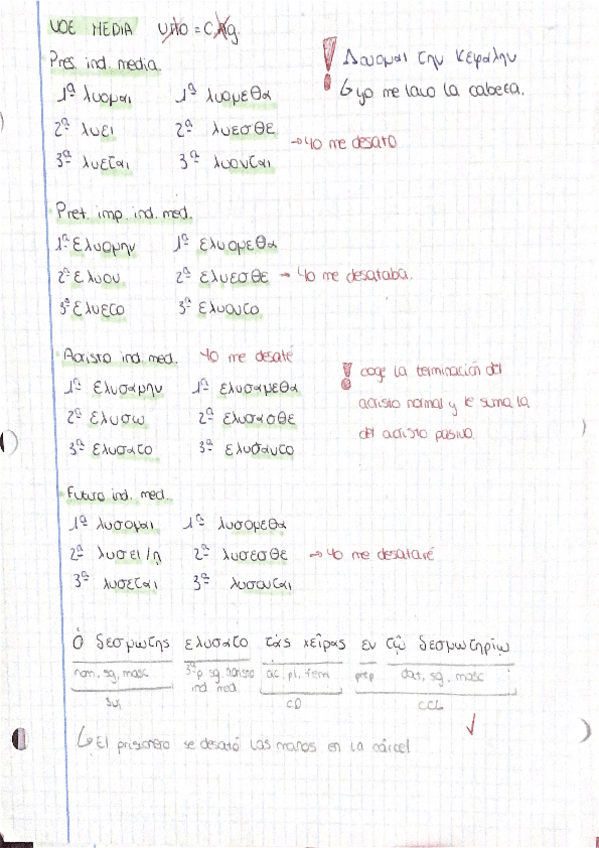 VOE MEDIA
Pres. ind. media.
! Λουομαι την κεφαλην
↳ yo me lavo la cabeza.
1ª λυομαι 1ª λυομεθα
2ª λυει 2ª λυεσθε
→ Yo me desato
3ª λυεται 3ª λυονται
Pret. imp. ind. med.
1ª ελυομην 1ª ελυομεθα
2ª ελυου 2ª ελυεσθε → Yo me desataba.
3ª ελυετο 3ª ελυοντο
Aoristo ind. med. Yo me desaté
! coge la terminación del
aoristo normal y le suma la
del aoristo pasivo
1ª ελυσαμην 1ª ελυσαμεθα
2ª ελυσω 2ª ελυσασθε
3ª ελυσατο 3ª ελυσαντο
Futuro ind. med.
1ª λυσομαι 1ª λυσομεθα
2ª λυσει/η 2ª λυσεσθε → Yo me desataré
3ª λυσεται 3ª λυσονται
Ὁ δεσμωτης ελυσατο τάς χεῖρας εν τῷ δεσμωτηρίῳ
nom, sg, masc 3ªp sg. aoristo ind med ac, pl, fem prep dat, sg, masc
Suj CD CCL
↳ El prisionero se desató las manos en la cárcel